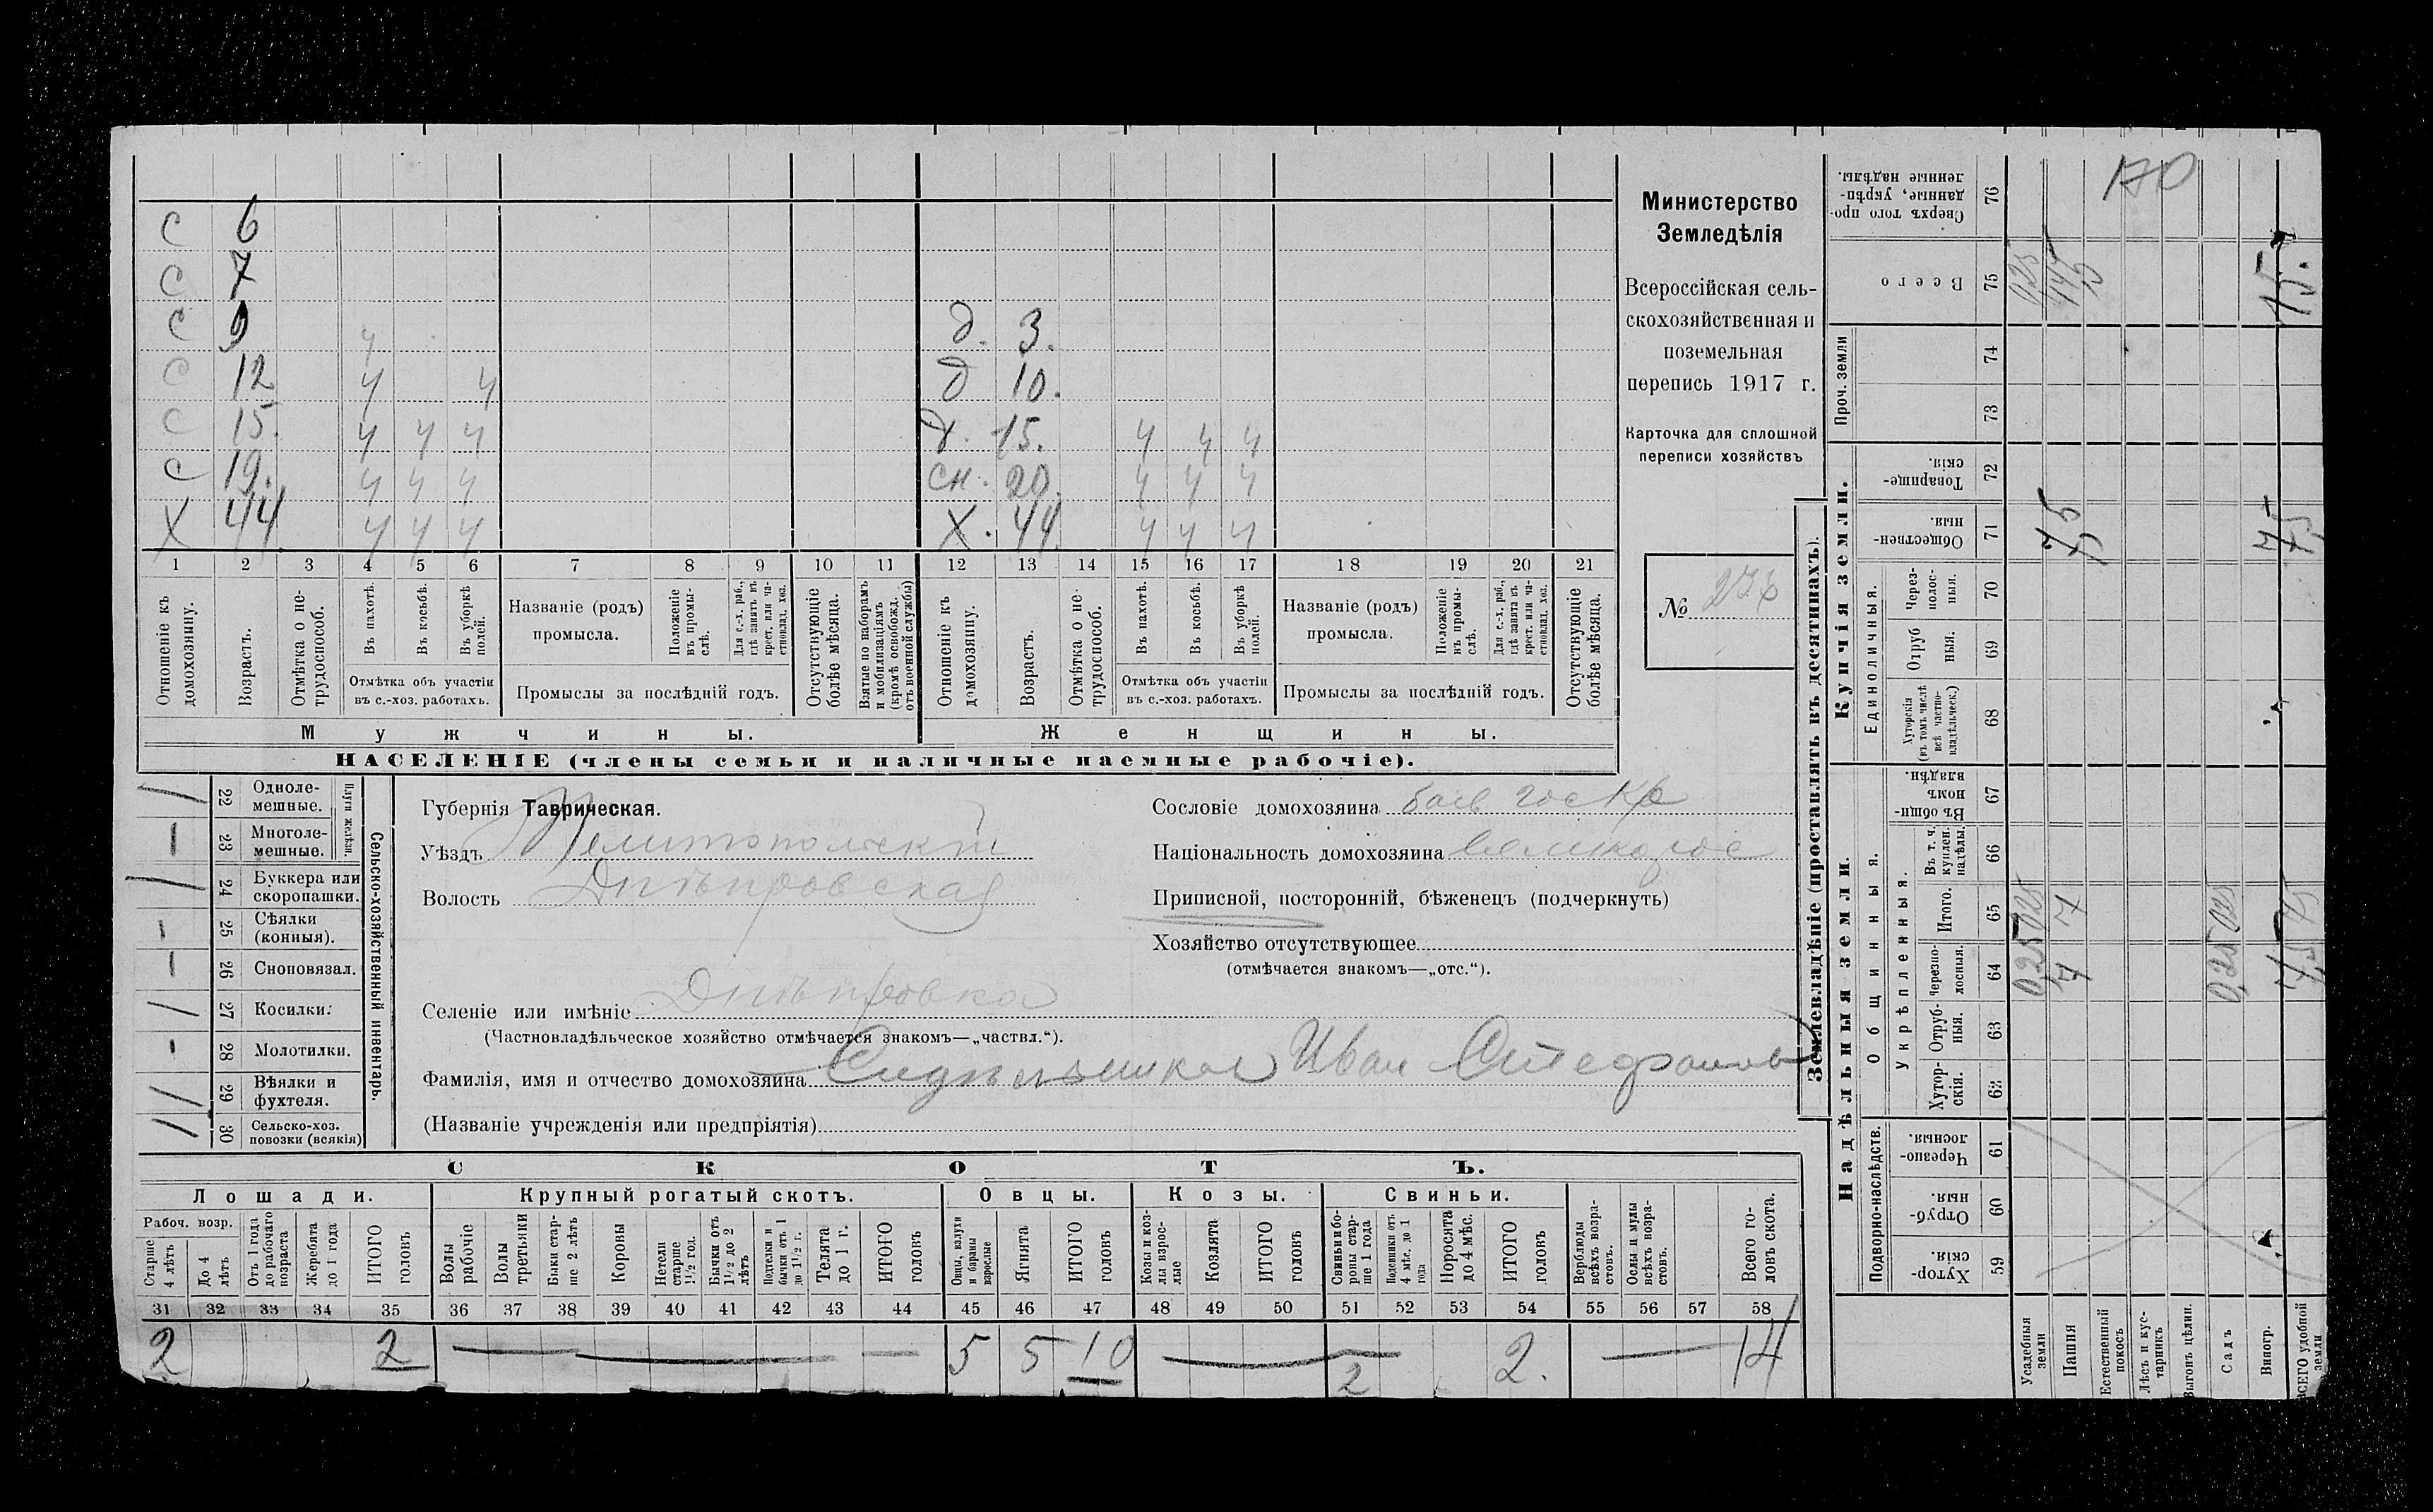 С 6
С 7
С 9 ч
С 12 ч ч
С 15. ч ч ч
С 19. ч ч ч
Х 44 ч ч ч
д. 3.
д 10.
д. 15. ч ч ч
сн. 20. ч ч ч
Х. 44. ч ч ч
1 2 3 4 5 6 7 8 9 10 11 12 13 14 15 16 17 18 19 20 21
Отношеніе къ домохозяину.
Возрастъ.
Отмѣтка о не-
трудоспособ.
Въ пахотѣ.
Въ косьбѣ.
Въ уборкѣ полей.
Отмѣтка объ участіи
въ с.-хоз. работахъ.
Названіе (родъ)
промысла.
Положеніе въ промы-
слѣ.
Для с.-х. раб.,
гдѣ занятъ въ
крест. или ча-
стновлад. хоз.
Промыслы за послѣдній годъ.
Отсутствующіе
болѣе мѣсяца.
Взятые по наборамъ
и мобилизаціямъ
(кромѣ освобожд.
отъ военной службы)
Отношеніе къ
домохозяину.
Возрастъ.
Отмѣтка о не-
трудоспособ.
Въ пахотѣ.
Въ косьбѣ.
Въ уборкѣ
полей.
Отмѣтка объ участіи
въ с.-хоз. работахъ.
Названіе (родъ)
промысла.
Положеніе
въ промы-
слѣ.
Для с.-х. раб.,
гдѣ занята въ
крест. или ча-
стновлад. хоз.
Промыслы за послѣдній годъ.
Отсутствующіе
болѣе мѣсяца.
Мужчины.
Женщины.
НАСЕЛЕНІЕ (члены семьи и наличные наемные рабочіе).
Министерство
Земледѣлія
Всероссійская сель-
скохозяйственная и
поземельная
перепись 1917 г.
Карточка для сплошной
переписи хозяйствъ
№
22 Одноле-
мешные.
23 Многоле-
мешные.
Плуги желѣзн.
24 Буккера или
скоропашки.
25 Сѣялки
(конныя).
26 Сноповязал.
27 Косилки.
28 Молотилки.
29 Вѣялки и
фухтеля.
30 Сельско-хоз.
повозки (всякія)
Сельско-хозяйственный инвентарь.
Губернія Таврическая.
Уѣздъ Мелитопольскій
Волость Днѣпровская
Селеніе или имѣніе Днѣпровка
(Частновладѣльческое хозяйство отмѣчается знакомъ—„частвл.“).
Фамилія, имя и отчество домохозяина Иван Стефанов
(Названіе учрежденія или предпріятія)
Сословіе домохозяина
Національность домохозяина великорос
Приписной, посторонній, бѣженецъ (подчеркнуть)
Хозяйство отсутствующее
(отмѣчается знакомъ—„отс.“).
СКОТЪ.
Лошади.
Рабоч. возр.
Старше
4 лѣтъ
До 4
лѣтъ
Отъ 1 года
до рабочаго
возраста
Жеребята
до 1 года
ИТОГО
головъ
Крупный рогатый скотъ.
Волы
рабочіе
Волы
третьяки
Быки стар-
ше 2 лѣтъ
Коровы
Нетели
старше
1½ год.
Бычки отъ
1½ до 2
лѣтъ
Подтелки и
бычки отъ 1
до 1½ г.
Телята
до 1 г.
ИТОГО
головъ
Овцы.
Овцы, валухи
и бараны
взрослые
Ягнята
ИТОГО
головъ
Козы.
Козы и коз-
лы взрос-
лые
Козлята
ИТОГО
головъ
Свиньи.
Свиньи и бо-
ровы стар-
ше 1 года
Подсвинки отъ
4 мѣс. до 1
года
Поросята
до 4 мѣс.
ИТОГО
головъ
Верблюды
всѣхъ возра-
стовъ.
Ослы и мулы
всѣхъ возра-
стовъ.
Всего го-
ловъ скота.
31 32 33 34 35 36 37 38 39 40 41 42 43 44 45 46 47 48 49 50 51 52 53 54 55 56 57 58
2 2 5 5 10 2 2. 14
Землевладѣніе (проставлять въ десятинахъ).
Купчія земли.
Надѣльныя земли.
Проч. земли
Единоличныя.
Общинныя.
Укрѣпленныя.
Подворно-наслѣдств.
Сверхъ того про-
данные, укрѣп-
ленные надѣлы. 76
Всего 75
74
73
Товарище-
скія. 72
Обществен-
ныя. 71
Через-
полос-
ныя. 70
Отруб
ныя. 69
Хуторскія
(въ томъ числѣ
всѣ частно-
владѣльческ.) 68
Въ общи-
номъ
владѣн. 67
Въ т. ч.
куплен.
надѣлы. 66
Итого. 65
Черезпо-
лосныя. 64
Отруб-
ныя. 63
Хутор-
скія. 62
Черезпо-
лосныя. 61
Отруб-
ныя. 60
Хутор-
скія. 59
Усадебныя
земли
Пашня
Естественный
покосъ
Лѣсъ и кус-
тарникъ
Выгонъ цѣлин.
Садъ
Виногр.
ВСЕГО удобной
земли
170
0,25
7,5
15.
7,5
0,25 0,25
7 7
0,25 0,25
7,5 7,5